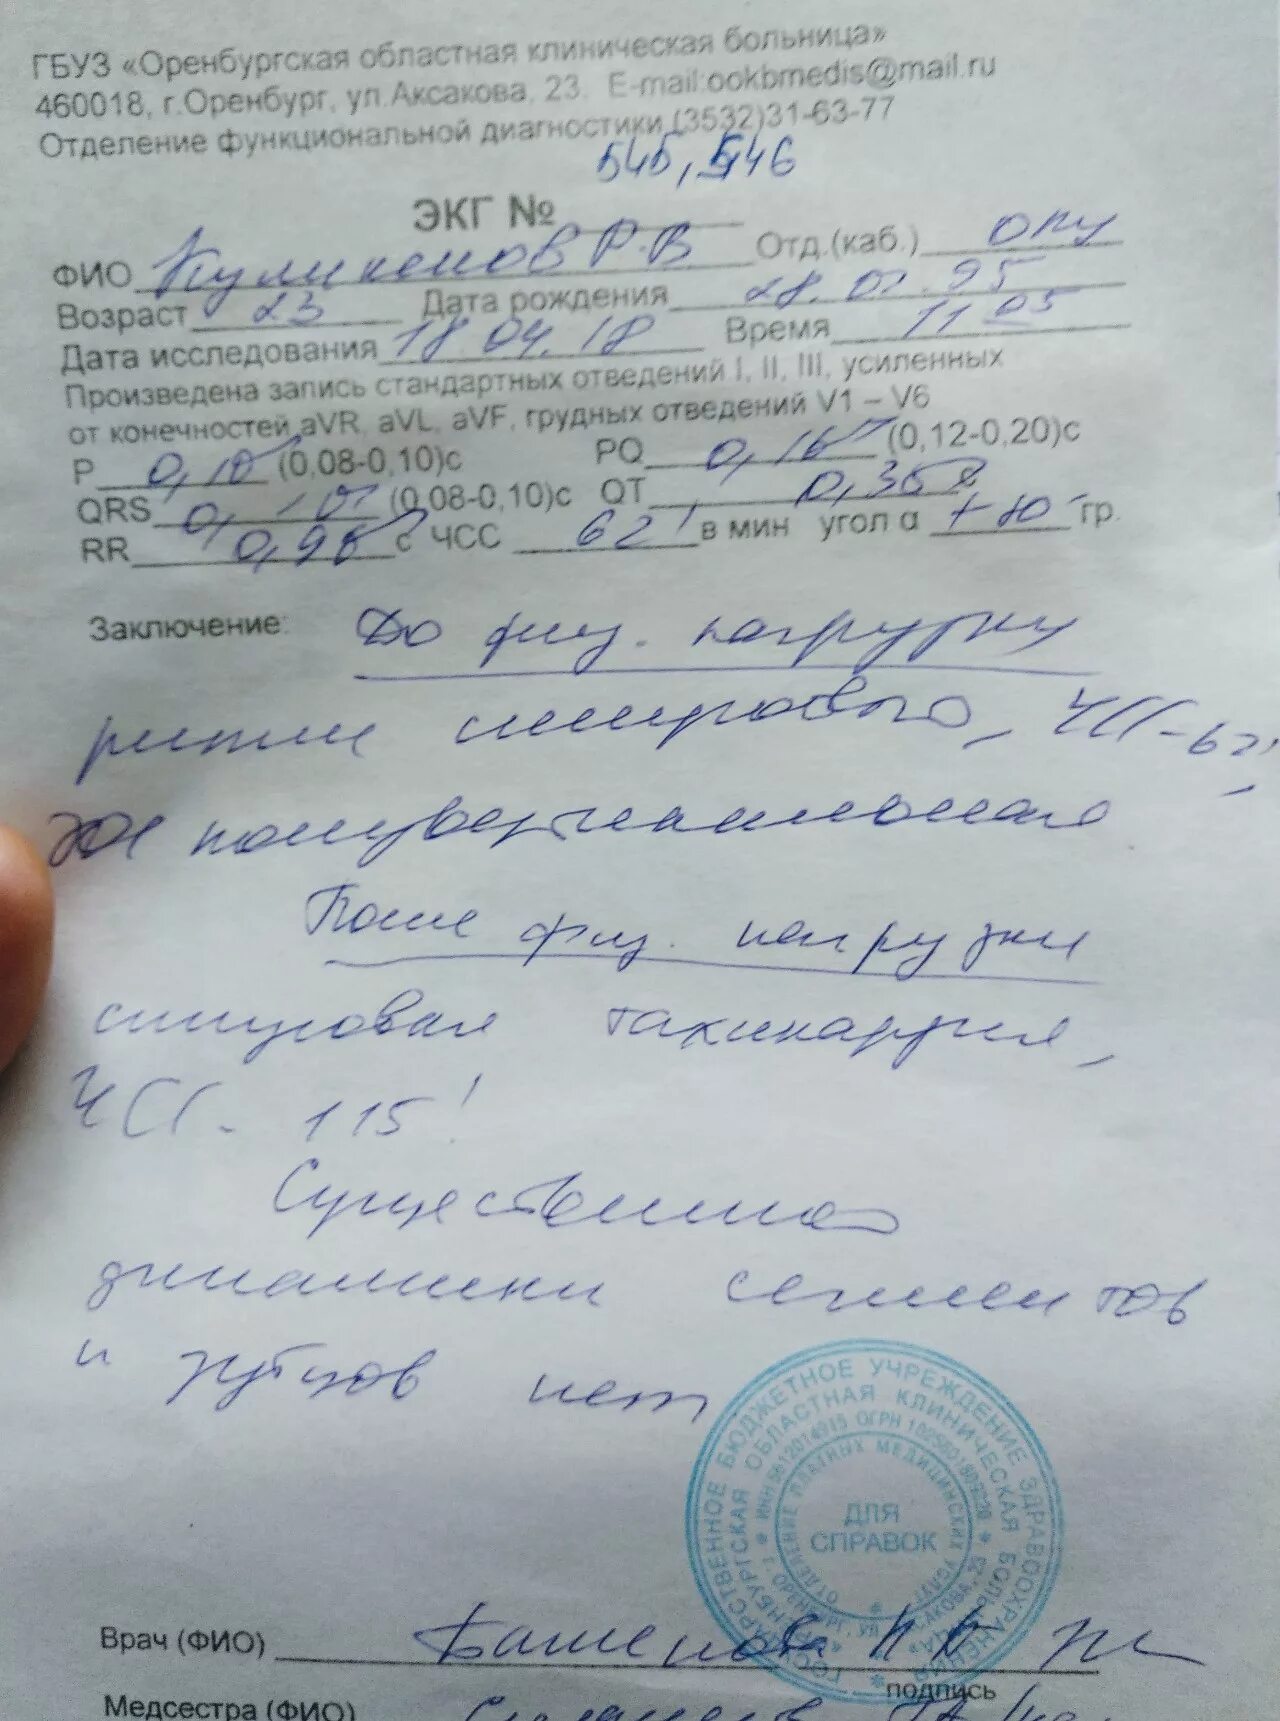 ГБУЗ «Оренбургская областная клиническая больница»
460018, г.Оренбург, ул.Аксакова, 23. E-mail:ookbmedis@mail.ru
Отделение функциональной диагностики (3532)31-63-77
545, 546
ЭКГ №
ФИО Р.В Отд.(каб.) ОПУ
Возраст 23 Дата рождения 95
Дата исследования 18.04.18 Время 11 05
Произведена запись стандартных отведений I, II, III, усиленных
от конечностей aVR, aVL, aVF, грудных отведений V1 – V6
P 0,10 (0,08-0,10)с PQ 0,16 (0,12-0,20)с
QRS (0,08-0,10)с QT
RR с ЧСС 62' в мин угол α гр.
Заключение: До физ. нагрузки
ритм синусовый, ЧСС-62',
ЭОС
После физ. нагрузки
синусовая тахикардия,
ЧСС - 115'
Существенной
динамики сегментов
и зубцов нет
ГОСУДАРСТВЕННОЕ БЮДЖЕТНОЕ УЧРЕЖДЕНИЕ ЗДРАВООХРАНЕНИЯ
ОРЕНБУРГСКАЯ ОБЛАСТНАЯ КЛИНИЧЕСКАЯ БОЛЬНИЦА
ОТДЕЛЕНИЕ ПЛАТНЫХ МЕДИЦИНСКИХ УСЛУГ
ДЛЯ
СПРАВОК
Врач (ФИО)
подпись
Медсестра (ФИО)